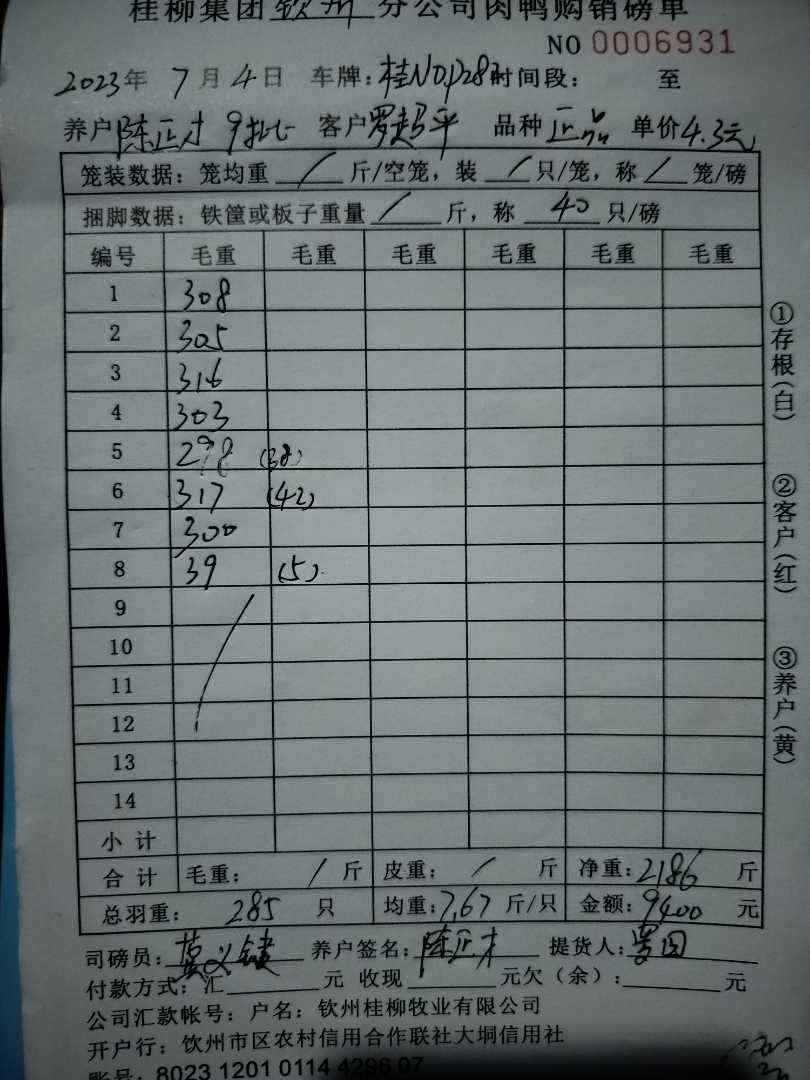 桂柳集团钦州分公司肉鸭购销磅单
NO 0006931
2023年 7月4日 车牌: 时间段: 至
养户陈正才 9批 客户罗超平 品种 正品 单价4.3元
笼装数据: 笼均重 / 斤/空笼, 装 / 只/笼, 称 / 笼/磅
捆脚数据: 铁筐或板子重量 / 斤, 称 40 只/磅
编号 毛重 毛重 毛重 毛重 毛重 毛重
1 308
2 305
3 316
4 303
5 298 (38)
6 317 (42)
7 300
8 39 (5)
9
10
11
12
13
14
小计
合计 毛重: / 斤 皮重: / 斤 净重: 2186 斤
总羽重: 285 只 均重: 7.67 斤/只 金额: 9400 元
司磅员: 养户签名: 陈正才 提货人:
付款方式: 汇 元 收现 元欠(余): 元
公司汇款帐号: 户名: 钦州桂柳牧业有限公司
开户行: 钦州市区农村信用合作联社大垌信用社
账号: 8023 1201 0114 4296 07
①存根(白)
②客户(红)
③养户(黄)